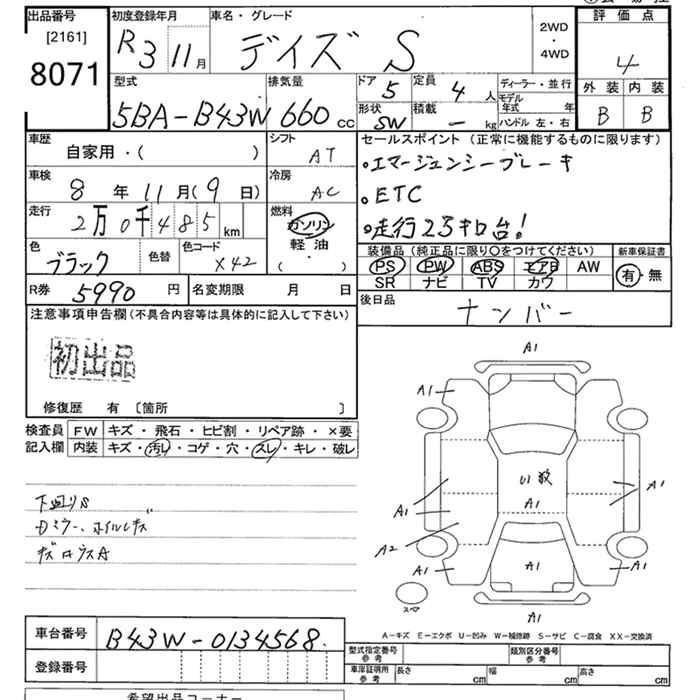 出品番号
[2161]
8071
初度登録年月
R3 11月
車名・グレード
デイズ S
2WD
・
4WD
評価点
4
外装 内装
B B
型式
5BA-B43W
排気量
660 cc
ドア 5
定員 4 人
形状 SW
積載 - kg
ディーラー・並行
モデル年式 年
ハンドル 左・右
車歴
自家用・( )
シフト
AT
車検
8年11月(9日)
冷房
AC
走行
2万0千485km
燃料
ガソリン
軽油
( )
色
ブラック
色替
色コード
X42
R券 5990円
名変期限 月 日
セールスポイント(正常に機能するものに限ります)
・エマージェンシーブレーキ
・ETC
・走行2万キロ台!
装備品(純正品に限り○をつけてください)
PS PW ABS エアB AW
SR ナビ TV カワ
新車保証書
有・無
後日品
ナンバー
注意事項申告欄(不具合内容等は具体的に記入して下さい)
初出品
修復歴 有 〔箇所 〕
検査員記入欄
FW キズ・飛石・ヒビ割・リペア跡・×要
内装 キズ・汚レ・コゲ・穴・スレ・キレ・破レ
下回りS
Dミラー、ホイルキズ
A1
A1
U1
A1
A1
A1
A2
A1
A1
A1
A1
スペア
A-キズ E-エクボ U-凹み W-補修跡 S-サビ C-腐食 XX-交換済
車台番号
B43W-0134568
登録番号
型式指定番号 参考
類別区分番号 参考
車庫証明用 参考
長さ cm
幅 cm
高さ cm
希望出品コーナー